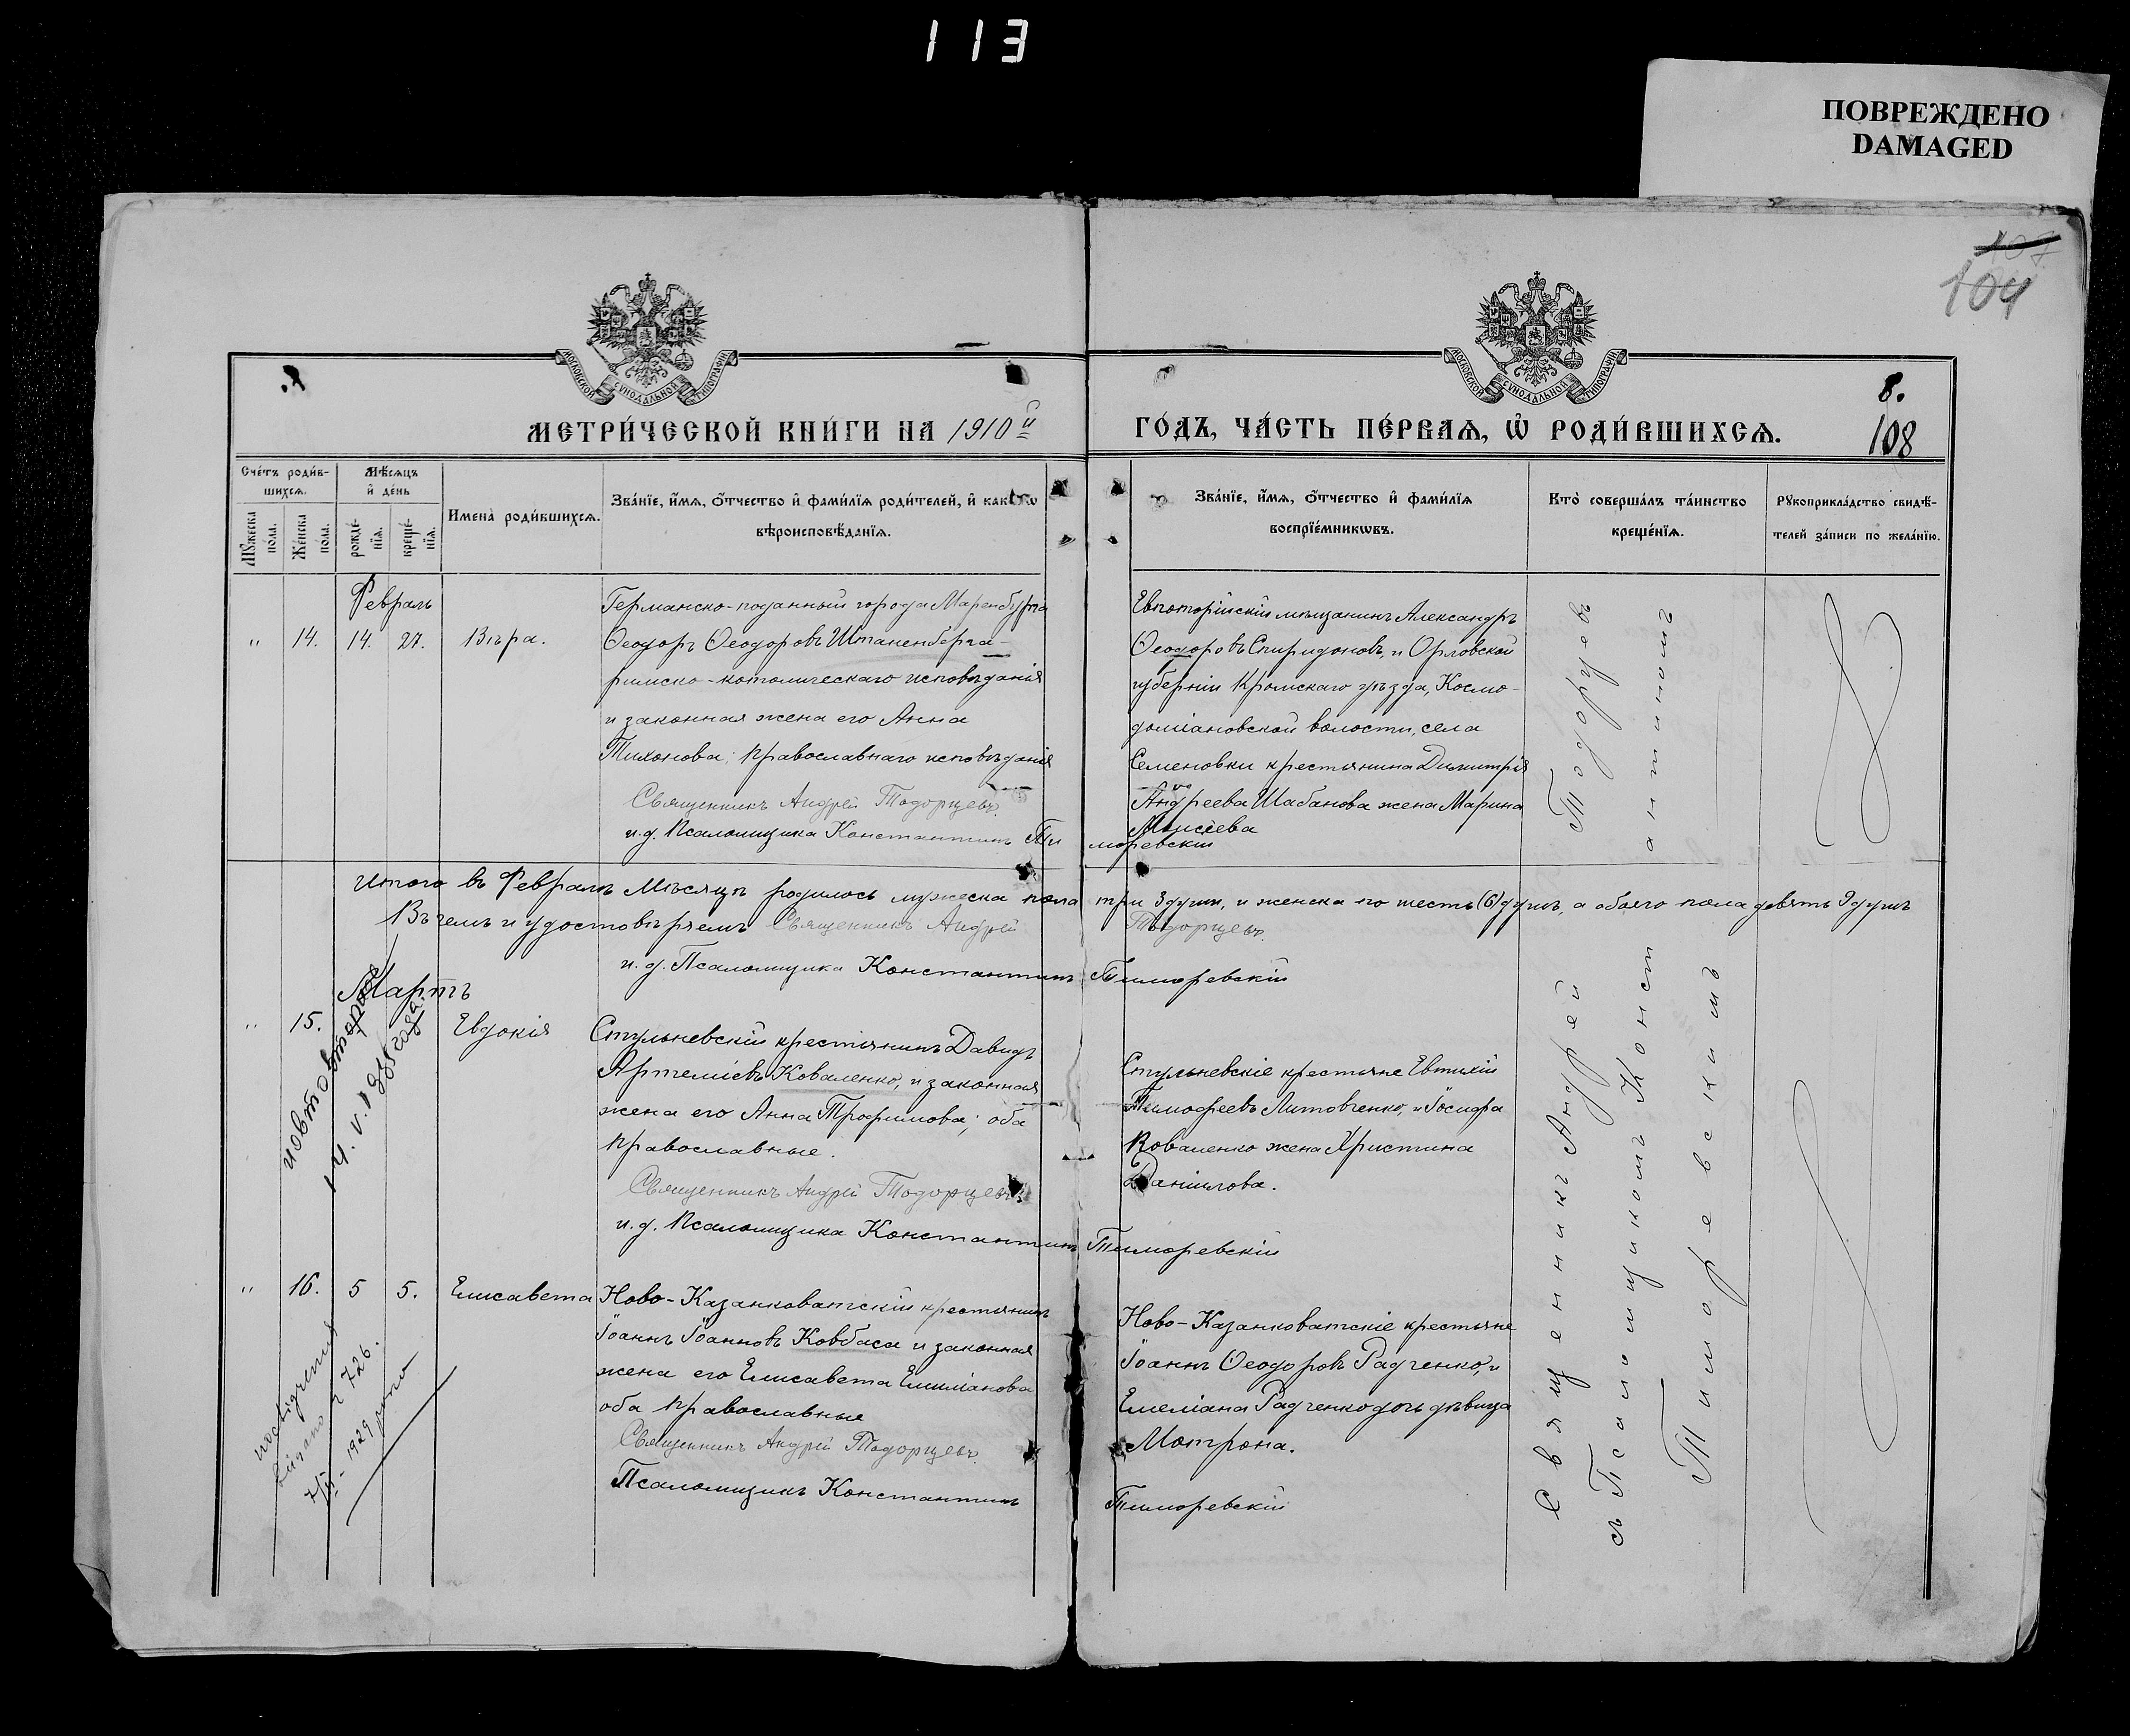 113
ПОВРЕЖДЕНО
DAMAGED
107
104
МОСКОВСКОЙ СѴНОДАЛЬНОЙ ТИПОГРАФІИ
МОСКОВСКОЙ СѴНОДАЛЬНОЙ ТИПОГРАФІИ
8.
МЕТРИ́ЧЕСКОЙ КНИ́ГИ НА 1910й
ГО́ДЪ, ЧА́СТЬ ПЕ́РВАѦ, Ѡ҆ РОДИ́ВШИХСѦ.
108
Сче́тъ роди́в-
шихсѧ.
Мѣ́сѧцъ
и҆ де́нь
Мꙋ́жеска
по́ла.
Же́нска
по́ла.
рожде́-
нїѧ.
креще́-
нїѧ.
Имена̀ роди́вшихсѧ.
Зва́нїе, и҆́мѧ, ѻ҆́тчество и҆ фами́лїѧ роди́телей, и҆ како́гѡ
вѣроисповѣ́данїѧ.
Зва́нїе, и҆́мѧ, ѻ҆́тчество и҆ фами́лїѧ
воспрїе́мникѡвъ.
Кто̀ соверша́лъ та́инство
креще́нїѧ.
Рꙋкоприкла́дство свидѣ́-
телей за́писи по жела́нїю.
Февраль
„ 14. 14. 27. Вѣра.
Германско-поданный города Маренбурга
Ѳеодоръ Ѳеодоровъ Штаненберга-
римско-католическаго исповѣданія
и законная жена его Анна
Тихонова; православнаго исповѣданія
Священникъ Андрей Тодорцевъ.
и.д. Псаломщика Константинъ Тиморевскій
Евпаторійскій мѣщанинъ Александръ
Ѳеодоровъ Спиридоновъ, и Орловской
губерніи Кромскаго уѣзда, Космо-
доміановской волости, села
Семеновки крестьянина Димитрія
Андреева Шабанова жена Марина
Моисеева
Итого въ Февралѣ Мѣсяцѣ родилось мужеска пола три 3 души, и женска по шесть (6) душъ, а обоего пола девять 9 душъ
Въ чемъ и удостовѣряемъ Священникъ Андрей Тодорцевъ.
и.д. Псаломщика Константинъ Тиморевскій
Мартъ
„ 15. Евдокія
Стульневскій крестьянинъ Давидъ
Артеміевъ Коваленко, и законная
жена его Анна Трофимова; оба
православные.
Священникъ Андрей Тодорцевъ.
и.д. Псаломщика Константинъ Тиморевскій
Стульневскіе крестьяне Евтихій
Тимофеевъ Литовченко, и Іосифа
Коваленко жена Христина
Даніилова.
„ 16. 5 5. Елисавета
Ново-Казанковатскій крестьянинъ
Іоаннъ Іоанновъ Ковбаса и законная
жена его Елисавета Емиліанова
оба православные
Священникъ Андрей Тодорцевъ.
Псаломщикъ Константинъ Тиморевскій
Ново-Казанковатскіе крестьяне
Іоаннъ Ѳеодоровъ Радченко, и
Емеліана Радченко дочь дѣвица
Мотрона.
Священникъ Андрей Тодорцев
съ Псаломщикомъ Константиномъ
Тиморевскимъ